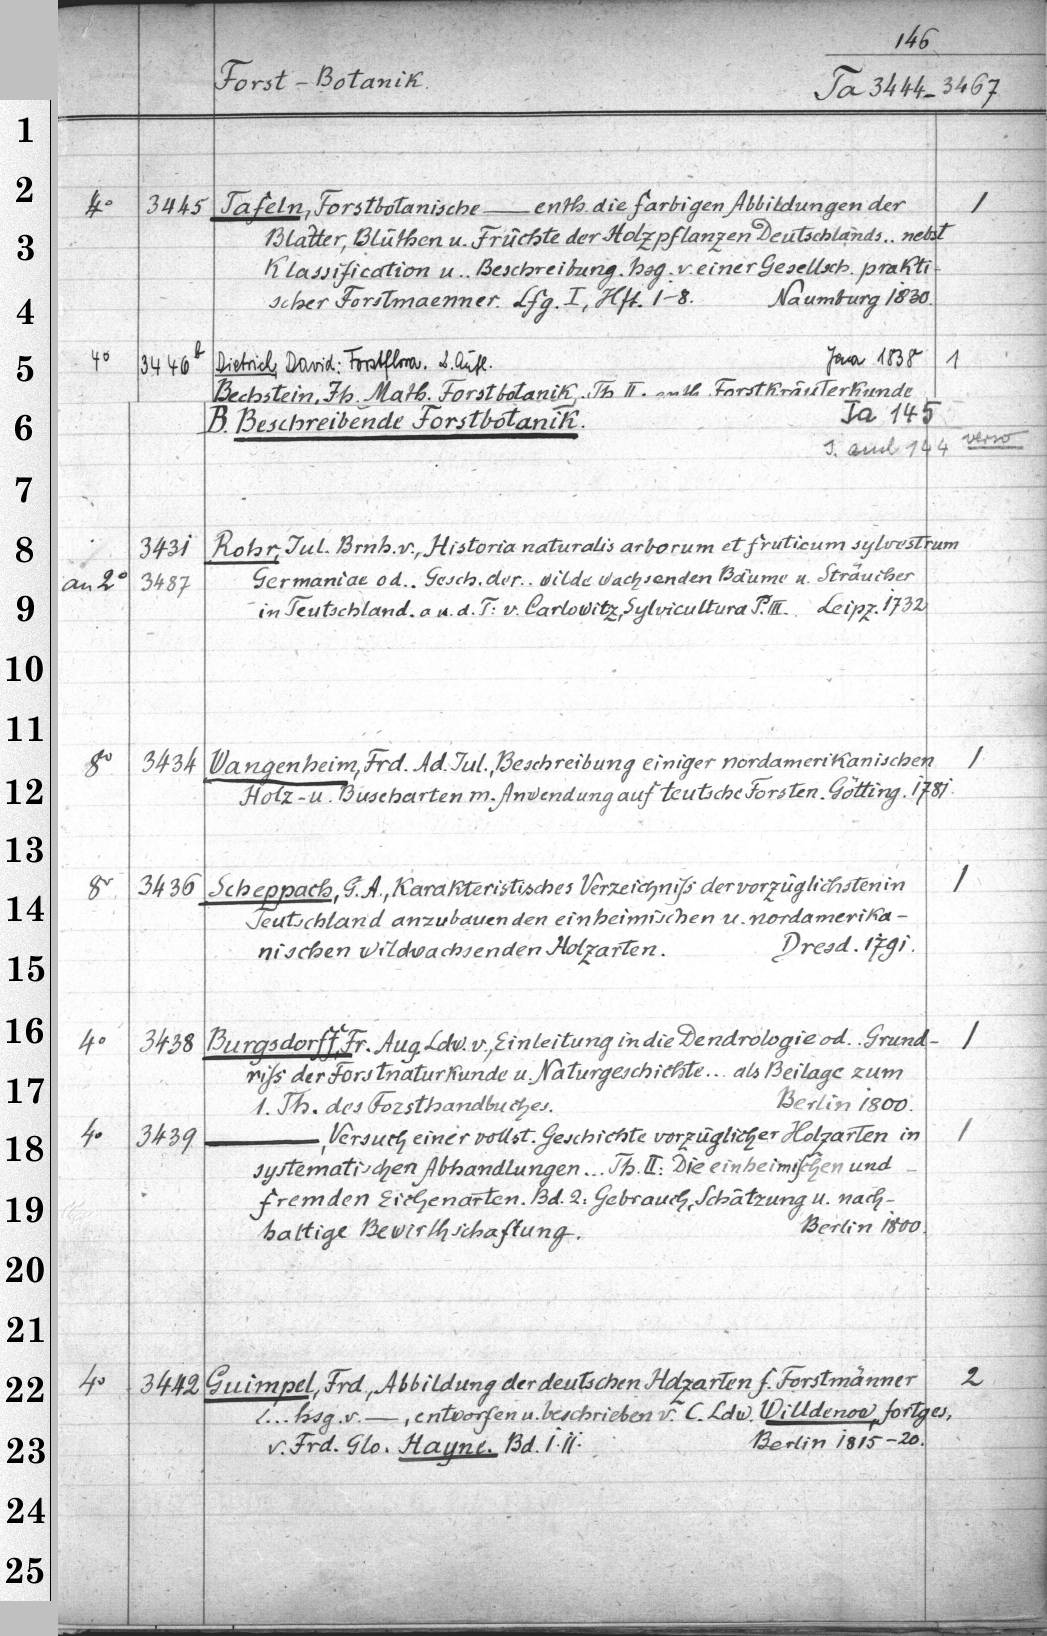 146
Forst-Botanik.
Ta 3444-3467
1
2
3
4
5
6
7
8
9
10
11
12
13
14
15
16
17
18
19
20
21
22
23
24
25
4° 3445 Tafeln, Forstbotanische — enth. die farbigen Abbildungen der 1
Blätter, Blüthen u. Früchte der Holzpflanzen Deutschlands.. nebst
Klassification u.. Beschreibung. hsg. v. einer Gesellsch. prakti-
scher Forstmaenner. Lfg. I, Hft. 1-8. Naumburg 1830.
4° 3446b Dietrich, David: Forstflora. 2. Aufl. Jena 1838 1
Bechstein, Jh. Math. Forstbotanik. Th. II. enth. Forstkräuterkunde
B. Beschreibende Forstbotanik. Ta 145
s. auch 144 verso
3431 Rohr, Jul. Brnh. v., Historia naturalis arborum et fruticum sylvestrum
an 2° 3487 Germaniae od.. Gesch. der.. wilde wachsenden Bäume u. Sträucher
in Teutschland. a u. d. T: v. Carlowitz, Sylvicultura P. III. Leipz. 1732
8° 3434 Wangenheim, Frd. Ad. Jul., Beschreibung einiger nordamerikanischen 1
Holz- u. Buscharten m. Anwendung auf teutsche Forsten. Götting. 1781.
8° 3436 Scheppach, G. A., Karakteristisches Verzeichniß der vorzüglichsten in 1
Teutschland anzubauenden einheimischen u. nordamerika-
nischen wildwachsenden Holzarten. Dresd. 1791.
4° 3438 Burgsdorff, Fr. Aug. Ldw. v., Einleitung in die Dendrologie od.. Grund- 1
riß der Forstnaturkunde u. Naturgeschichte... als Beilage zum
1. Th. des Forsthandbuches. Berlin 1800.
4° 3439 —, Versuch einer vollst. Geschichte vorzüglicher Holzarten in 1
systematischen Abhandlungen... Th. II: Die einheimischen und
fremden Eichenarten. Bd. 2: Gebrauch, Schätzung u. nach-
haltige Bewirthschaftung. Berlin 1800.
4° 3442 Guimpel, Frd., Abbildung der deutschen Holzarten f. Forstmänner 2
... hsg. v. —, entworfen u. beschrieben v. C. Ldw. Willdenow, fortges,
v. Frd. Glo. Hayne. Bd. I. II. Berlin 1815-20.